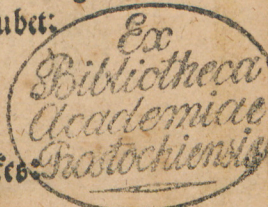 ubet:
Ex
Bibliotheca
Academiae
Rostochiensis